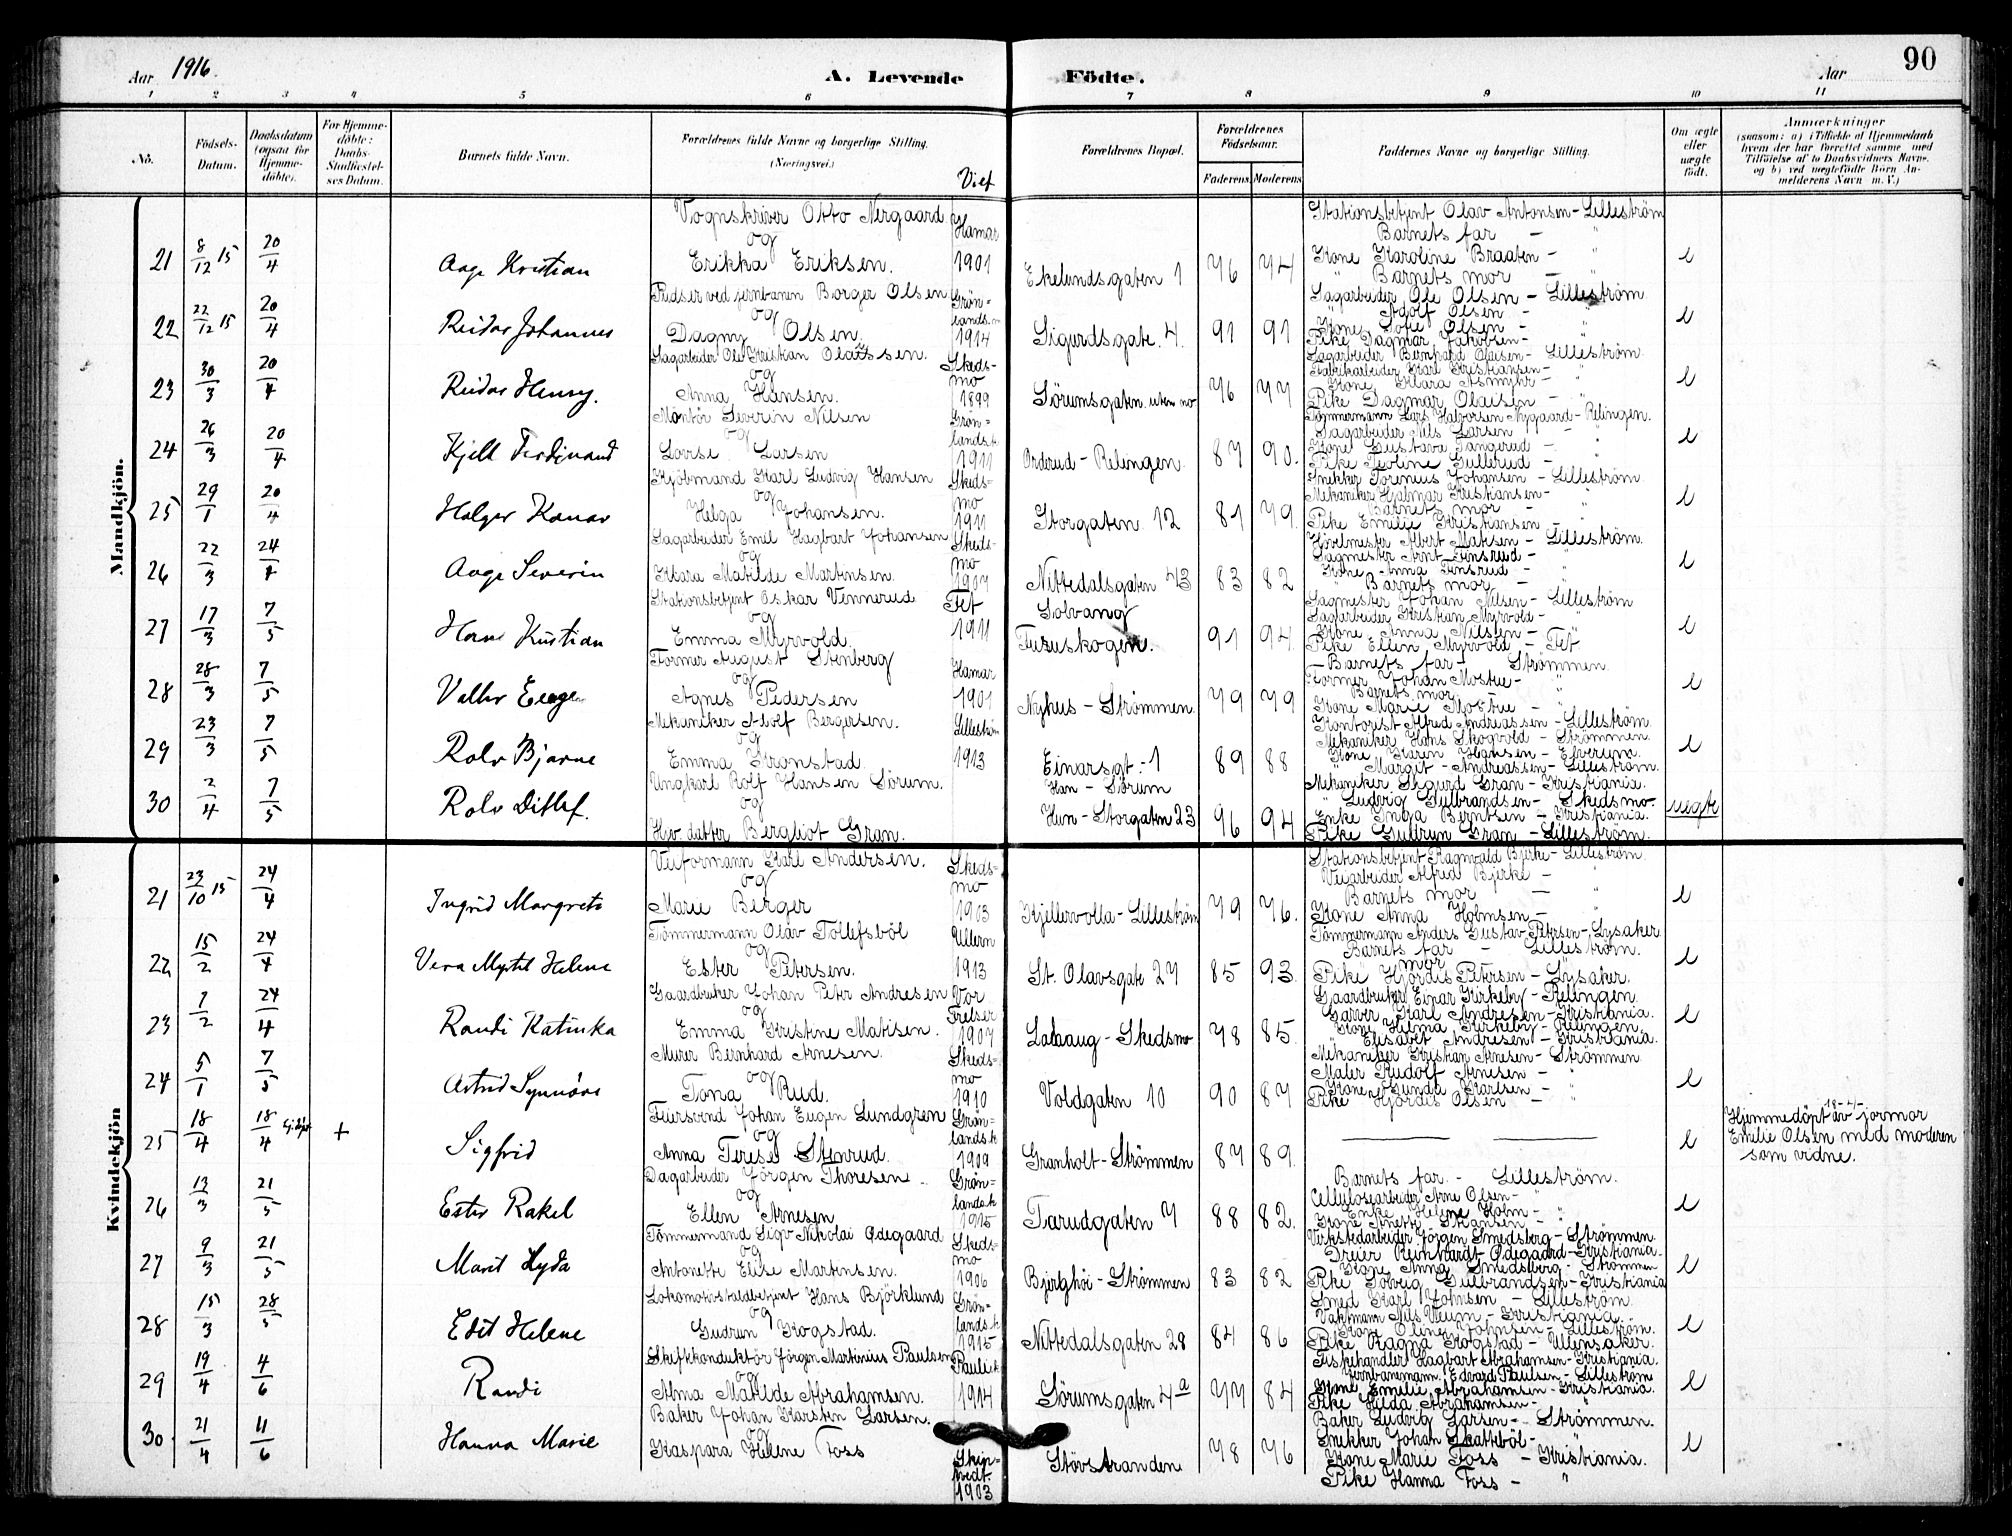 Aar 1916.
A. Levende Födte.
Aar
90
1 2 3 4 5 6 7 8 9 10 11
No.
Födsels-Datum.
Daabsdatum (ogsaa for Hjemmedöbte).
For Hjemmedöbte: Daabs-Stadfæstelses Datum.
Barnets fulde Navn.
Forældrenes fulde Navne og borgerlige Stilling. (Næringsvei.)
Viet
Forældrenes Bopæl.
Forældrenes Födselsaar.
Faderens Moderens
Faddernes Navne og borgerlige Stilling.
Om ægte eller uægte födt.
Anmærkninger
(saasom: a) i Tilfælde af Hjemmedaab hvem der har forrettet samme med Tilföielse af to Daabsvidners Navne, og b) ved uægtefödte Börn Anmelderens Navn m. V.)
Mandkjön.
21 8/12 15 20/4 Aage Kristian
Vognskriver Otto Nergaard og Erikka Eriksen.
Hamar 1901
Ekelundsgaten 1 76 74
Stationsbetjent Olav Antonsen - Lilleström
Barnets far - "
Kone Karoline Braaten - "
" Barnets mor - "
e
22 22/12 15 20/4 Reidar Johannes
Pudser ved jernbanen Borger Olsen og Dagny Olsen.
Grönlands.m 1914
Sigurdsgate. 4. 91 91
Sagarbeider Ole Olsen - Lilleström
" Adolf Olsen - "
Kone Sofie Olsen - "
Pike Dagmar Jakobsen - "
e
23 30/3 20/4 Reidar Henry.
Sagarbeider Ole Kristian Olaissen. og Anna Hansen.
Skedsmo 1899
Sörumsgaten. uten no 76 77
Sagarbeider Bernhard Olaisen - Lilleström.
Fabrikarbeider Karl Kristiansen - "
Kone Klara Asmyhr - "
Pike Dagmar Olaisen - "
e
24 26/3 20/4 Kjell Ferdinand
Montör Severin Nilsen og Lovise Larsen
Grönlands.k 1911
Orderud - Relingen. 87 90.
Tömmermann Lars Halvorsen Nygaard - Relingen.
Sagarbeider Nils Larsen - "
Kone Gustava Tangerud - "
Pike Teoline Gullerud - "
e
25 29/1 20/4 Holger Ranar
Kjöbmand Karl Ludvig Hansen og Helga Johansen.
Skedsmo 1911
Storgaten 12 81 79.
Snekker Torenius Johansen - Lilleström
Mekaniker Hjalmar Kristiansen - "
Barnets mor - "
Pike Emilie Kristiansen - "
e
26 22/3 24/4 Aage Severin
Sagarbeider Emil Hagbart Johansen og Klara Matilde Martinsen.
Skedsmo 1907
Nittedalsgaten 43 83 82
Hövelmester Albert Matisen - Lilleström.
Sagmester Arnt Finsrud - "
Kone Anna Finsrud - "
" Barnets mor - "
e
27 17/3 7/5 Hans Kristian
Stationsbetjent Oskar Vennerud og Emma Myrvold.
Fet 1911
Solvang
Furuskogen. 91 94
Sagmester Johan Nilsen - Lilleström
Sagarbeider Kristian Myrvold -
Kone Anna Nilsen - "
Pike Ellen Myrvold - Fet
e
28 28/3 7/5
Former August Stenberg og Agnes Pedersen
Hamar 1901
Nyhus - Strömmen. 79 79
Barnets far - Strömmen.
Former Johan Moskue - "
Barnets mor - "
Kone Marie Moskue - "
e
29 23/3 7/5 Rolv Bjarne
Mekaniker Adolf Bergersen. og Emma Kronstad.
Lilleström 1913
Einarsgt. - 1 89 88
Kontorist Alfred Andreassen - Lilleström.
Mekaniker Hans Skogvold - Strömmen.
Kone Karen Hansen - Elverum.
" Margit Andreassen - Lilleström.
e
30 2/4 7/5 Rolv Ditlef.
Ungkarl Rolf Hansen Sörum. og Hv datter Bergliot Gran.
Han - Sörum
Hun - Storgaten 23 96 94
Mekaniker Sigurd Gran - Kristiania.
" Ludvig Gulbrandsen - Skedsmo.
Enke Inga Berntsen - Kristiania.
Pike Gudrun Gran - Lilleström.
uegte
Kvindekjön
21 23/10 15 24/4 Ingrid Margrete
Veiformann Karl Andersen. og Marie Berger
Skedsmo 1903
Kjellervolla - Lilleström 79 76.
Stationsbetjent Ragnvald Bjerke - Lilleström
Veiarbeider Alfred Bjerke - "
Barnets mor - "
Kone Anna Holmsen - "
e
22 15/2 24/4 Vera Myrtil Helene
Tömmermann Olav Tollefsböl og Ester Petersen.
Ullern 1913
St. Olavsgate 27 85 93
Tömmermann Anders Gustav Petersen - Lysaker
Barnets far - Lilleström.
" mor - "
Pike Hjördis Petersen - Lysaker.
e
23 7/2 24/4 Randi Katinka
Gaardbruker Johan Peter Andresen og Emma Kristine Matisen.
Vor Frelser 1907
Labaug - Skedsmo 78 85.
Gaardbruker Einar Kirkeby - Relingen.
Garver Karl Andresen - Kristiania.
Kone Helma Kirkeby - Relingen.
" Elisabet Andresen - Kristiania.
e
24 5/1 7/5 Astrid Synnöve
Murer Bernhard Arnesen. og Tona Rud.
Skedsmo 1910
Voldgaten 10 90 87
Mekaniker Kristian Arnesen - Strömmen.
Maler Rudolf Arnesen - "
Kone Gunda Karlsen - "
Pike Hjördis Olsen - "
e
25 18/4 18/4 + Sigfrid
Feiersvend Johan Eugen Lundgren og Anna Terese Stenrud.
Grönlands.k 1909
Granholt - Strömmen 87 89.
e
18-4-
Hjemmedöpt av jormor
Emelie Olsen med moderen
som vidne.
26 13/3 21/5 Ester Rakel
Dagarbeider Jörgen Thoresen og Ellen Arnesen
Grönlands.k 1915
Tarudgaten 7 88 82.
Barnets far. - Lilleström.
Cellulosearbeider Arne Olsen - "
Enke Helene Holm - "
Kone Anette Stiansen - "
e
27 9/3 21/5 Marit Lyda
Tömmermand Sigv Nikolai Ødegaard og Antonette Elise Martinsen.
Skedsmo 1906
Bjerghöi - Strömmen 83 82
Verkstedarbeider Jörgen Smedsberg - Strömmen.
Dreier Reinhardt Ødegaard - Kristiania.
Kone Anna Smedsberg - Strömmen
Pike Solveig Gulbrandsen - Kristiania
e
28 15/3 28/5 Edit Helene
Lokomotivstaldbetjent Hans Björklund og Gudrun Kogstad.
Grönlands.k 1915
Nittedalsgaten 28 84 86
Smed Karl Johnsen - Lilleström.
Vaktmann Nils Veum - Kristiania.
Kone Oline Johnsen - Lilleström.
Pike Ragna Kogstad - Ullensaker.
e
29 19/4 4/6 Randi
Skiftkonduktör Jörgen Martinius Paulsen og Alma Matilde Abrahamsen.
Pauli.k 1914
Sörumsgaten 4a 77 84
Fiskehandler Hagbart Abrahamsen - Kristiania.
Jernbanemann. Edvard Paulsen - Lilleström
Kone Emelie Abrahamsen - Kristiania.
Pike Hilda Abrahamsen - "
e
30 21/4 11/6 Hanna Marie
Baker Johan Karsten Larsen. og Kaspara Helene Foss
Skiptvedt. 1903
Stövstranden 78 76
Baker Ludvig Larsen - Strömmen.
Snekker Johan Skatteböl - "
Kone Marie Foss - Kristiania.
Pike Hanna Foss - "
e